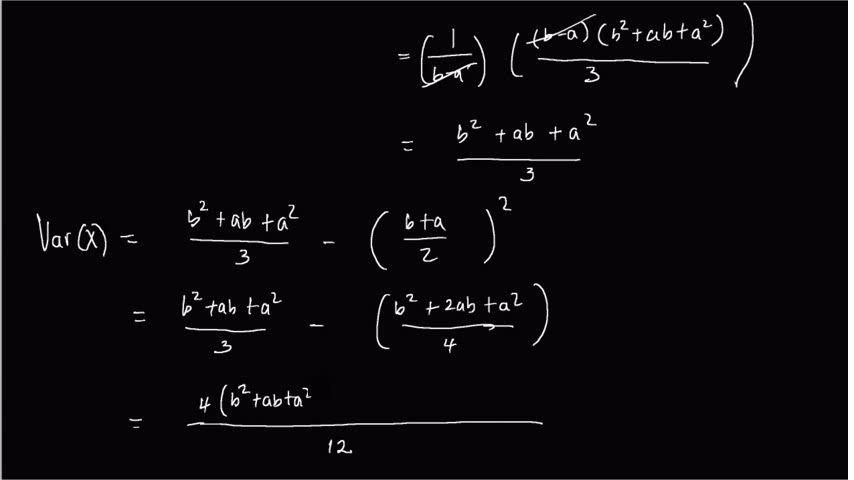 = (1/(b-a)) ((b-a)(b²+ab+a²)/3)
= (b²+ab+a²)/3
Var(X) = (b²+ab+a²)/3 - ((b+a)/2)²
= (b²+ab+a²)/3 - ((b²+2ab+a²)/4)
= 4(b²+ab+a²/12